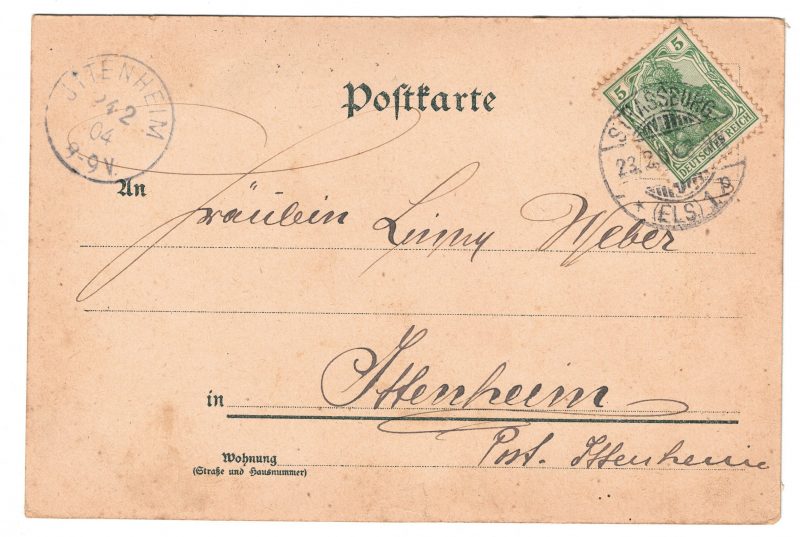 JTTENHEIM
24 2
04
8-9V.
Postkarte
5
5
DEUTSCHES REICH
STRASSBURG
23. 2.
* (ELS) 1
An
Fräulein Weber
in Ittenheim
Wohnung
(Straße und Hausnummer)
Post. Ittenheim